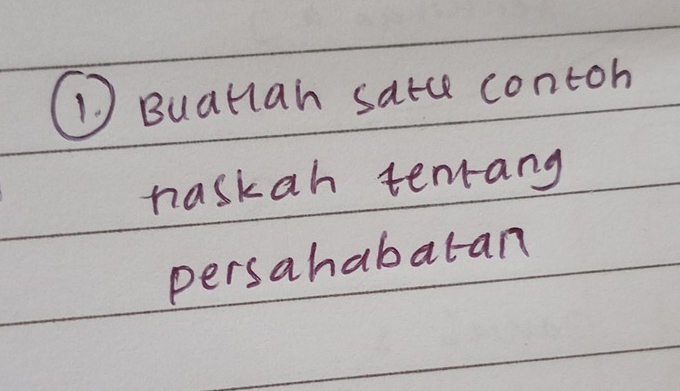 1. Buatlah satu contoh
naskah tentang
persahabatan